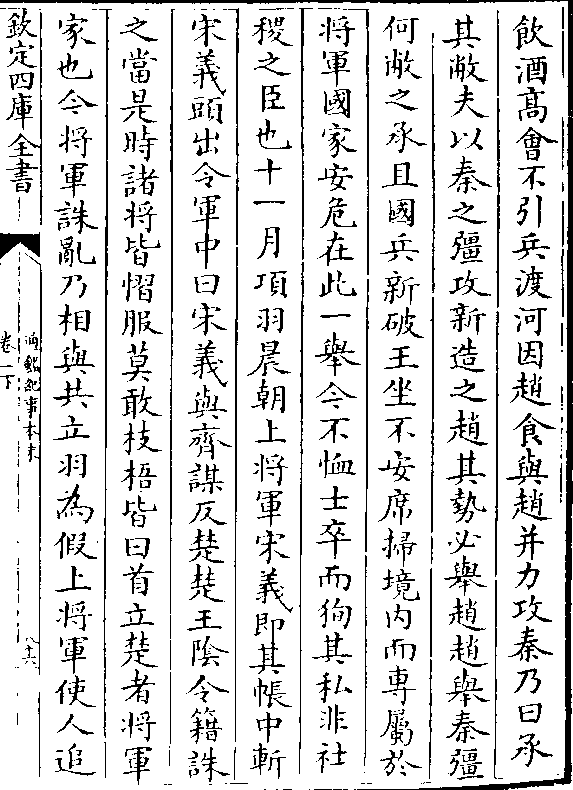 飲酒髙會不引兵渡河因趙食與趙并力攻秦乃曰承
其敝夫以秦之彊攻新造之趙其勢必舉趙趙舉秦彊
何敝之承且國兵新破王坐不安席掃境内而專屬於
将軍國家安危在此一舉今不恤士卒而狥其私非社
稷之臣也十一月項羽晨朝上將軍宋義即其帳中斬
宋義頭出令軍中曰宋義與齊謀反楚楚王隂令籍誅
之當是時諸将皆慴服莫敢枝梧皆曰首立楚者將軍
家也今将軍誅亂乃相與共立羽為假上将軍使人追
欽定四庫全書
通鑑紀事本末
卷一下
八十六